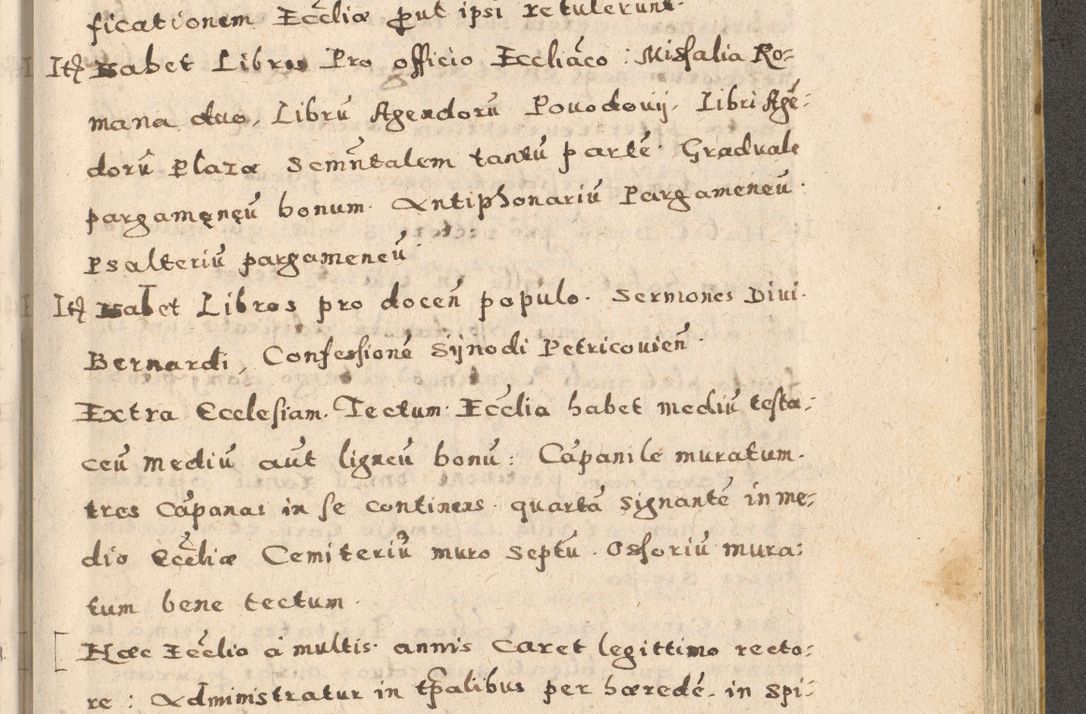 ficationem Eccliæ put ipsi retulerunt.
Itē Habet Libros Pro officio Ecclāco : Missalia Ro-
mana duo, Librū Agendorū Pouodouij. Libri Agē-
dorū Plaræ Semn̄talem tantū partē. Graduale
pargamenēū bonum. Antiphonariū Pargameneū.
Psalteriū pargameneū
Itē Habet Libros pro docen̄ populo. Sermones Divi.
Bernardi, Confessionē Sÿnodi Petricouien̄.
Extra Ecclesiam. Tectum Eccl̄ia habet mediū testa-
ceū mediū aūt ligneū bonū : Cāpanile muratum.
tres Cāpanas in se continens. quartā signantē in me-
dio Eccl̄iæ Cemiteriū muro septū. Ossoriū mura-
tum bene tectum.
Hæc Eccl̄ia a multis annis Caret legittimo recto-
re : Administratur in tp̄alibus per hæredē. in spi-